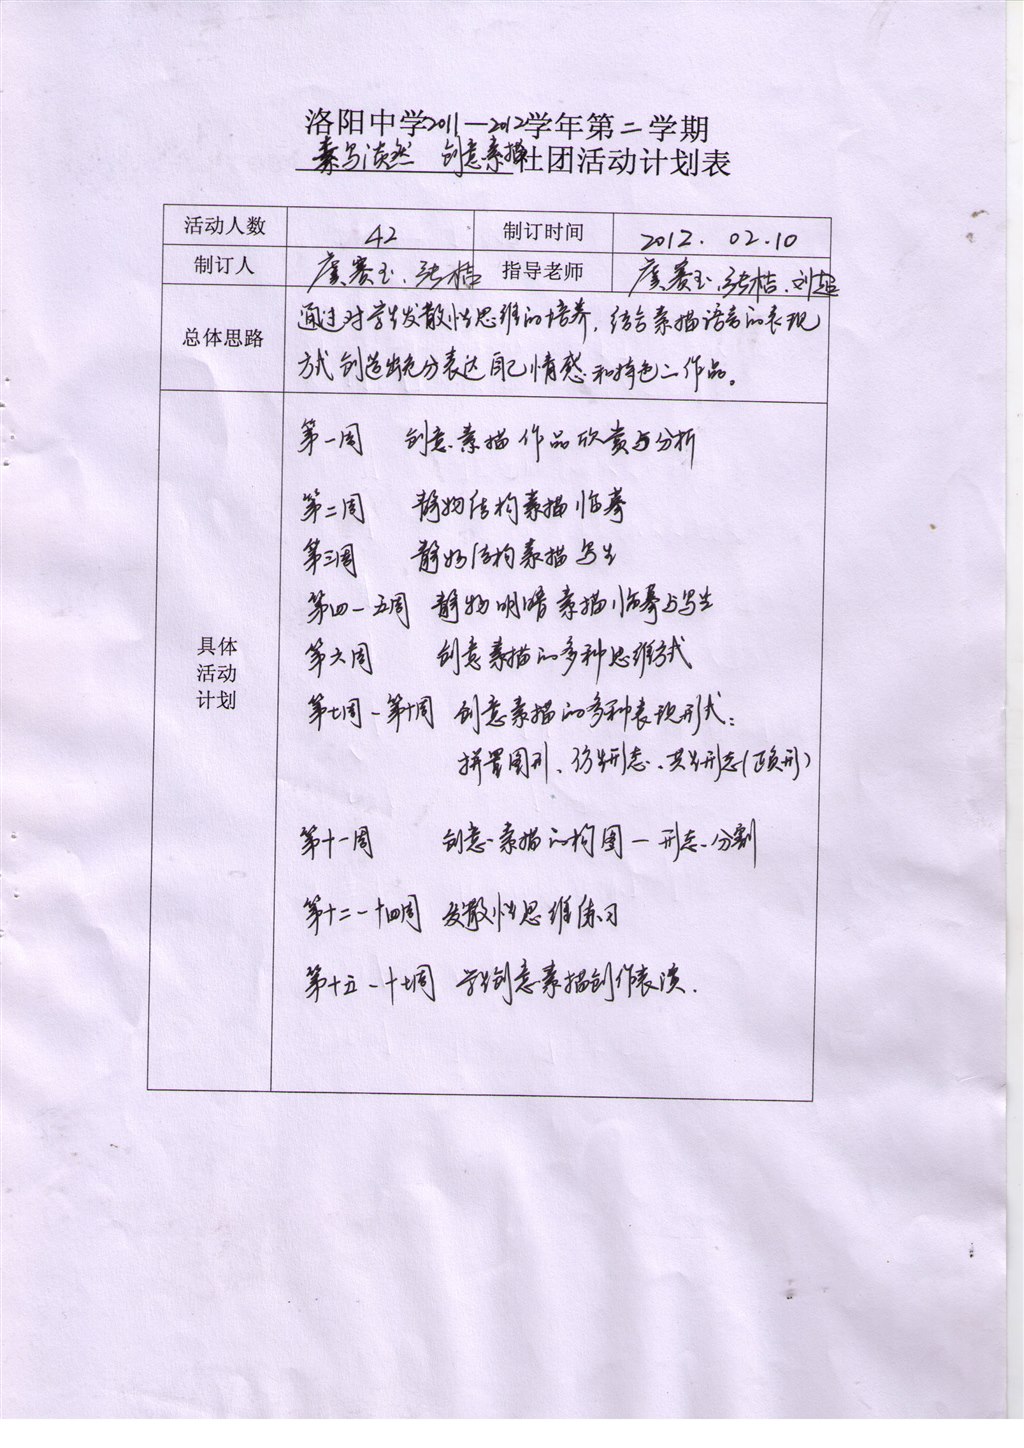 洛阳中学2011—2012学年第二学期
素写淡然 创意素描社团活动计划表
活动人数 42 制订时间 2012.02.10
制订人 虞赛玉、张桔 指导老师 虞赛玉、张桔、刘超
总体思路 通过对学生发散性思维的培养,结合素描语言的表现
方式创造出充分表达自己情感和特色的作品。
具体
活动
计划
第一周 创意素描作品欣赏与分析
第二周 静物结构素描临摹
第三周 静物结构素描写生
第四-五周 静物明暗素描临摹与写生
第六周 创意素描的多种思维方式
第七周-第十周 创意素描的多种表现形式:
拼置图形、仿生形态、共生形态(正负形)
第十一周 创意素描的构图—形态分割
第十二-十四周 发散性思维练习
第十五-十七周 学生创意素描创作表演.